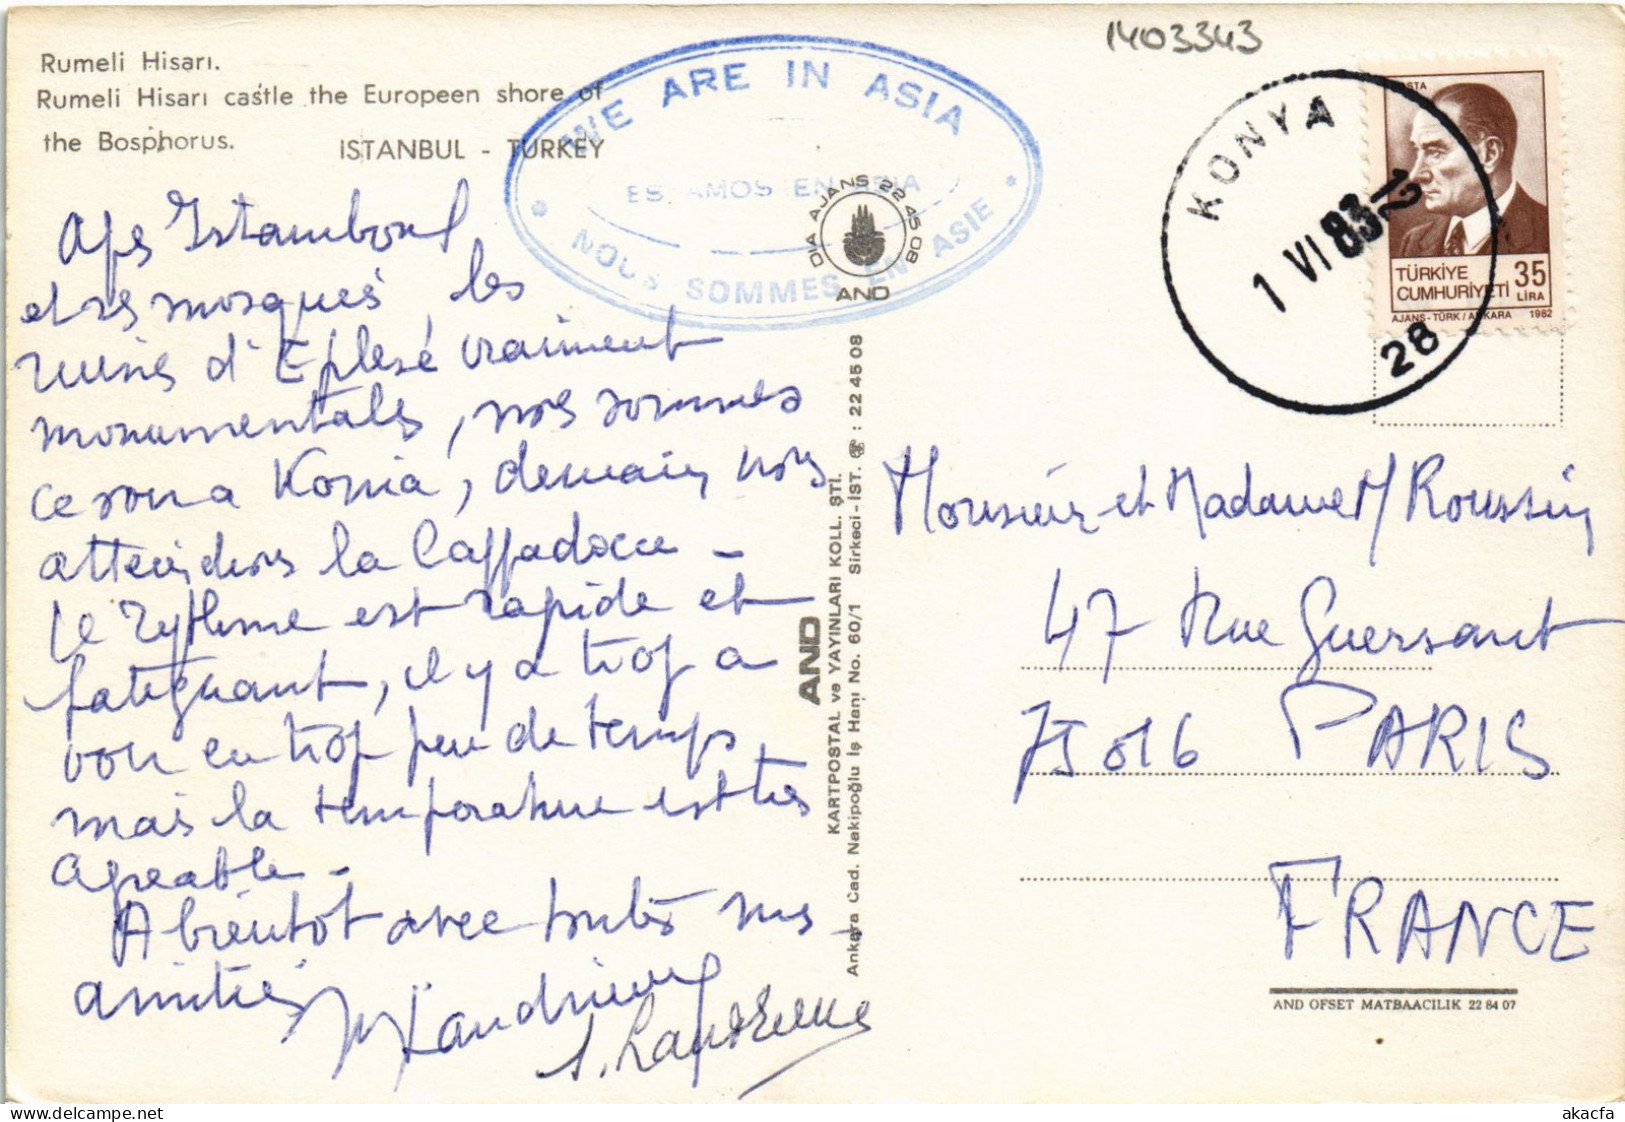 1403343
Rumeli Hisarı.
Rumeli Hisarı castle the Europeen shore of
the Bosphorus.
ISTANBUL - TURKEY
WE ARE IN ASIA
ESTAMOS EN ASIA
NOUS SOMMES EN ASIE
DIA AJANS 22 45 08
AND
KONYA
1 VI 83 12
28
POSTA
TÜRKİYE
CUMHURİYETİ
35
LİRA
AJANS-TÜRK/ANKARA 1982
Aps Istamboul
et ses mosqués, les
ruines d'Ephesé vraiment
monumentales, nos sommes
ce soir a Konia, demain nos
atteindrons la Cappadoce -
Le rythme est rapide et
fatiguant, il y a trop a
voir en trop peu de temps
mais la temperature est tres
agreable -
A bientot avec toutes mes
amitiés
AND
KARTPOSTAL ve YAYINLARI KOLL. ŞTİ.
Ankara Cad. Nakipoğlu İş Hanı No. 60/1 Sirkeci-İST. ☎ : 22 45 08
Monsieur et Madame Roussin
47 Rue Guersant
75016 PARIS
FRANCE
AND OFSET MATBAACILIK 22 84 07
akacfa